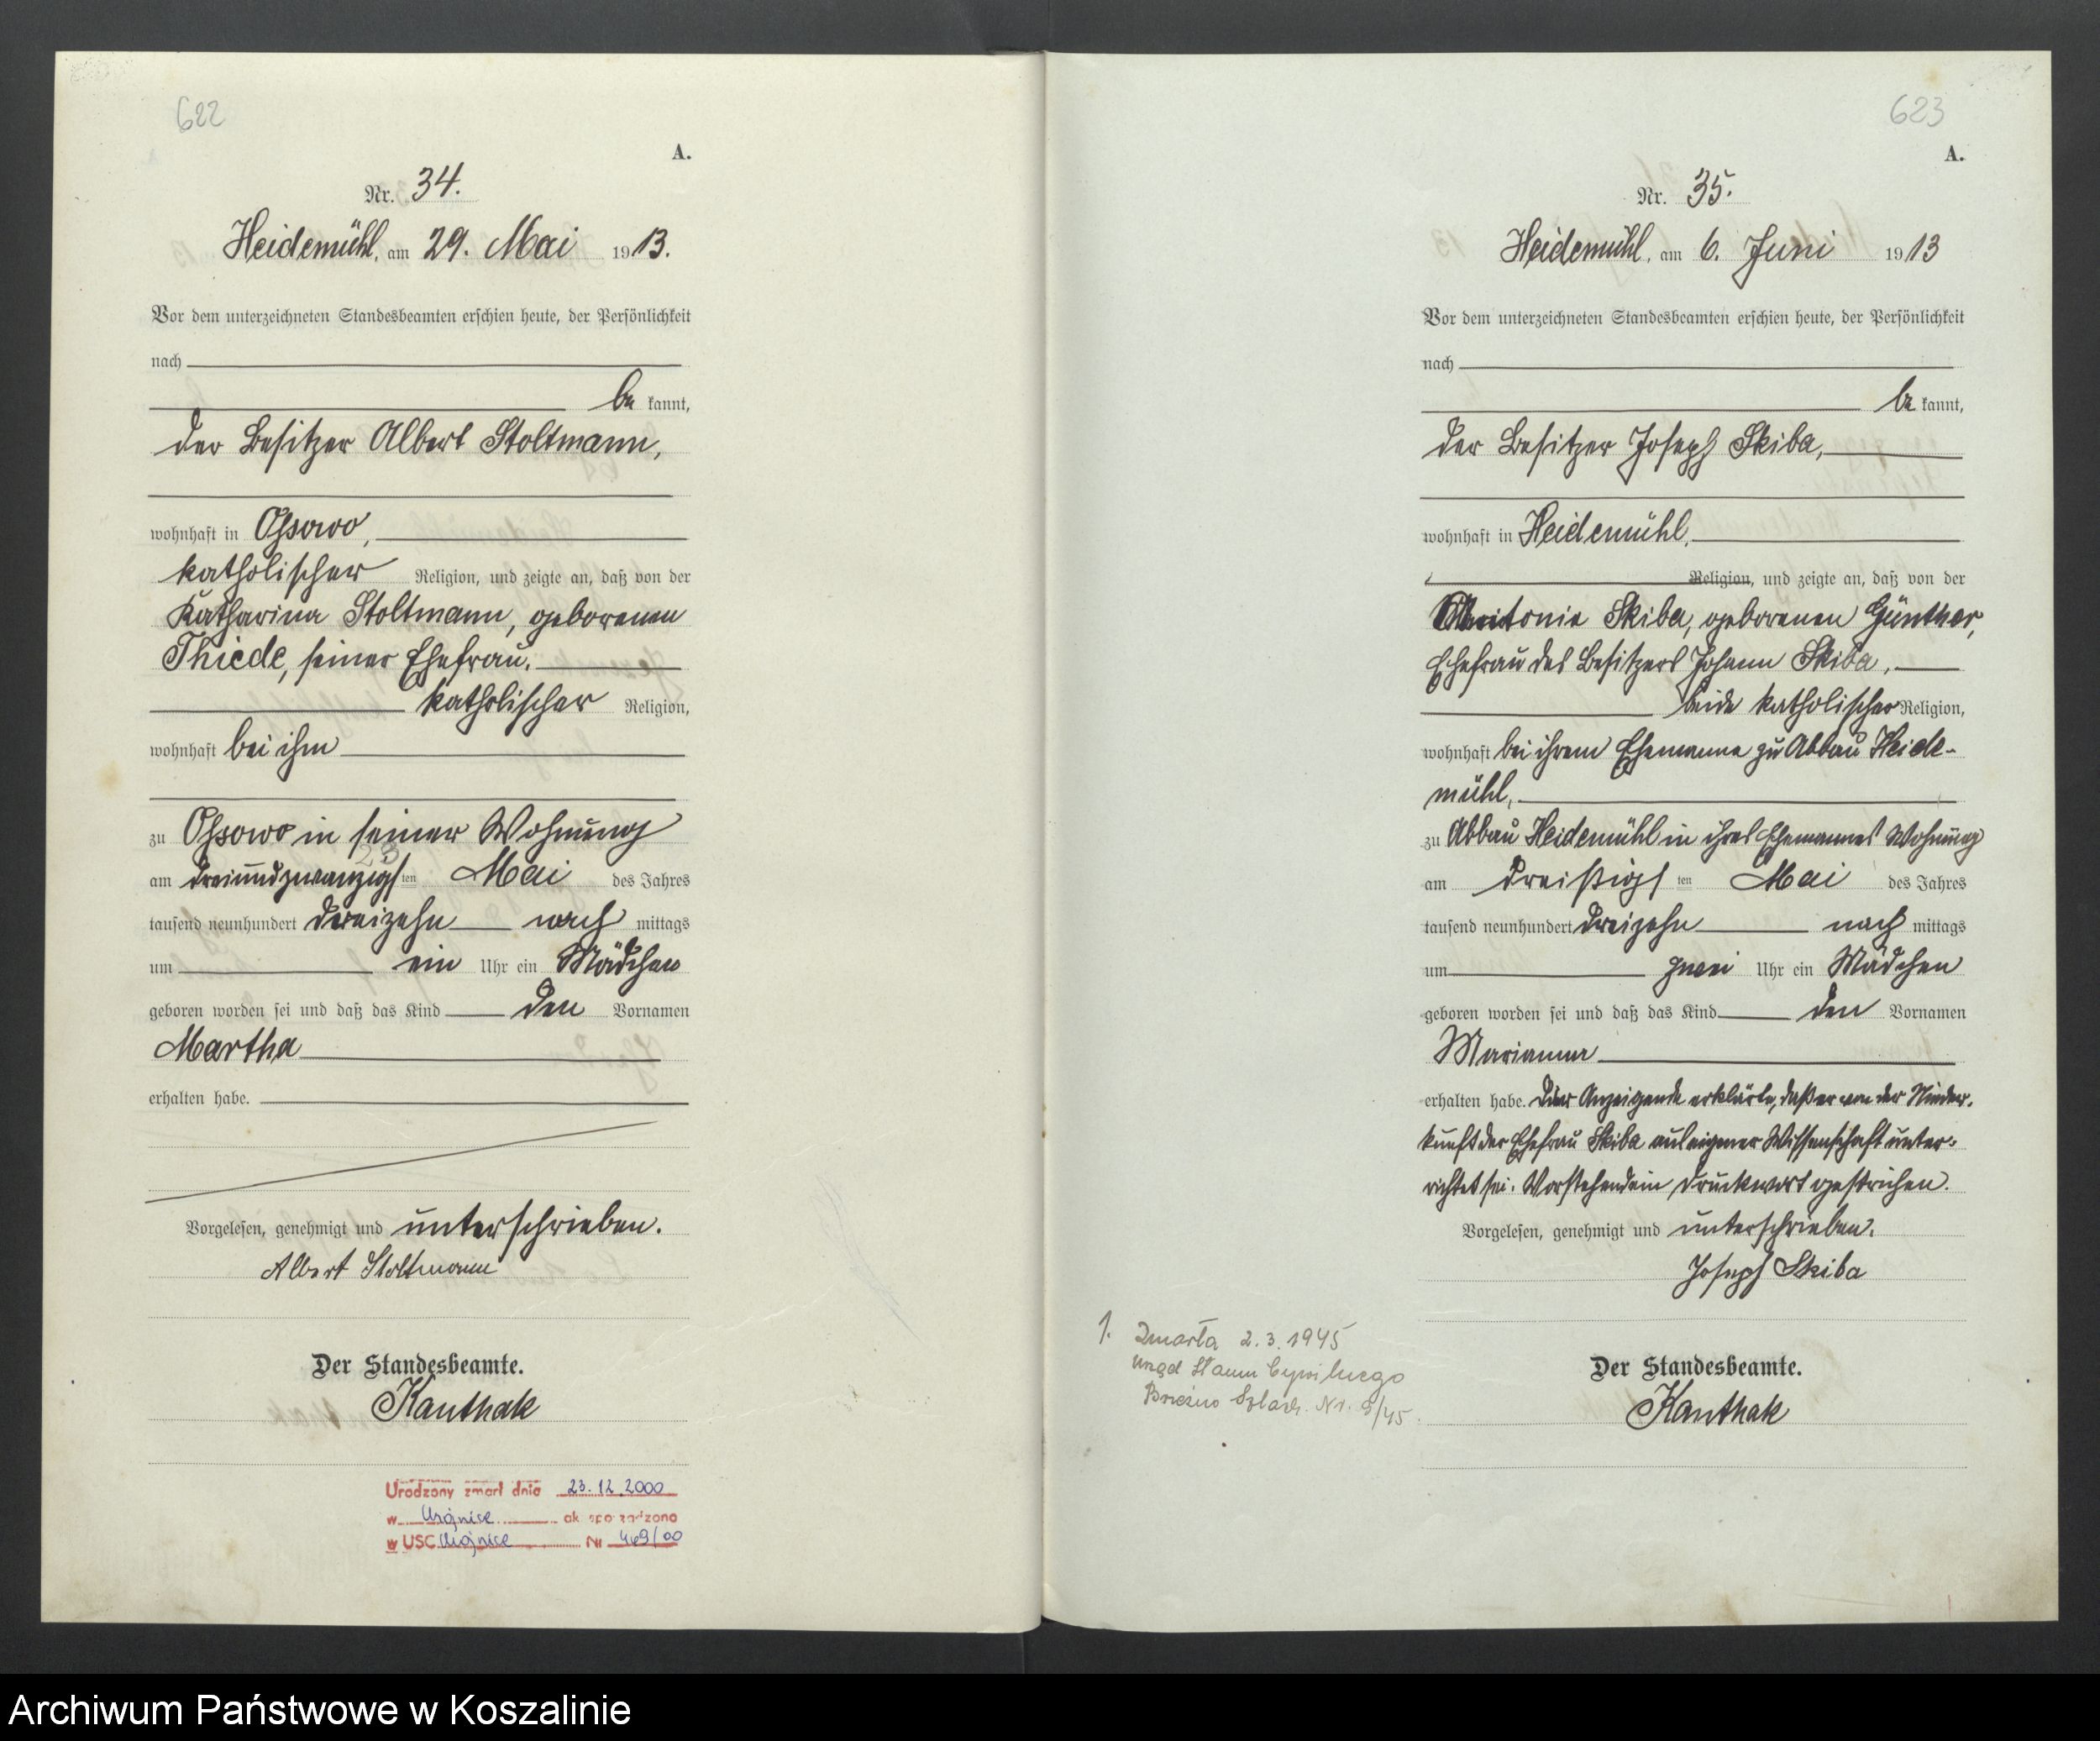 622
A.
Nr. 34.
Heidemühl, am 29. Mai 1913.
Vor dem unterzeichneten Standesbeamten erschien heute, der Persönlichkeit
nach
be kannt,
der Besitzer Albert Stoltmann,
wohnhaft in Ossowo,
katholischer Religion, und zeigte an, daß von der
Katharina Stoltmann, geborenen
Thiede, seiner Ehefrau,
katholischer Religion,
wohnhaft bei ihm
zu Ossowo in seiner Wohnung
23
am dreiundzwanzigsten Mai des Jahres
tausend neunhundert dreizehn nach mittags
um ein Uhr ein Mädchen
geboren worden sei und daß das Kind den Vornamen
Martha
erhalten habe.
Vorgelesen, genehmigt und unterschrieben.
Albert Stoltmann
Der Standesbeamte.
Kanthak
Urodzony zmarł dnia 23.12.2000
w Chojnice ak. sporządzono
w USC Chojnice Nr 469/00
623
A.
Nr. 35.
Heidemühl, am 6. Juni 1913
Vor dem unterzeichneten Standesbeamten erschien heute, der Persönlichkeit
nach
be kannt,
der Besitzer Joseph Skiba,
wohnhaft in Heidemühl,
Religion, und zeigte an, daß von der
Antonie Skiba, geborenen Günther,
Ehefrau des Besitzers Johann Skiba,
beide katholischer Religion,
wohnhaft bei ihrem Ehemanne zu Abbau Heide-
mühl,
zu Abbau Heidemühl in ihres Ehemannes Wohnung
am dreißigsten Mai des Jahres
tausend neunhundert dreizehn nach mittags
um zwei Uhr ein Mädchen
geboren worden sei und daß das Kind den Vornamen
Marianna
erhalten habe. Der Anzeigende erklärte, daß er von der Nieder-
kunft der Ehefrau Skiba aus eigener Wissenschaft unter-
richtet sei. Vorstehend ein Druckwort gestrichen.
Vorgelesen, genehmigt und unterschrieben.
Joseph Skiba
1. Zmarła 2.3.1945
Urząd Stanu Cywilnego
Brzeźno Szlach. Nr. 9/45.
Der Standesbeamte.
Kanthak
Archiwum Państwowe w Koszalinie